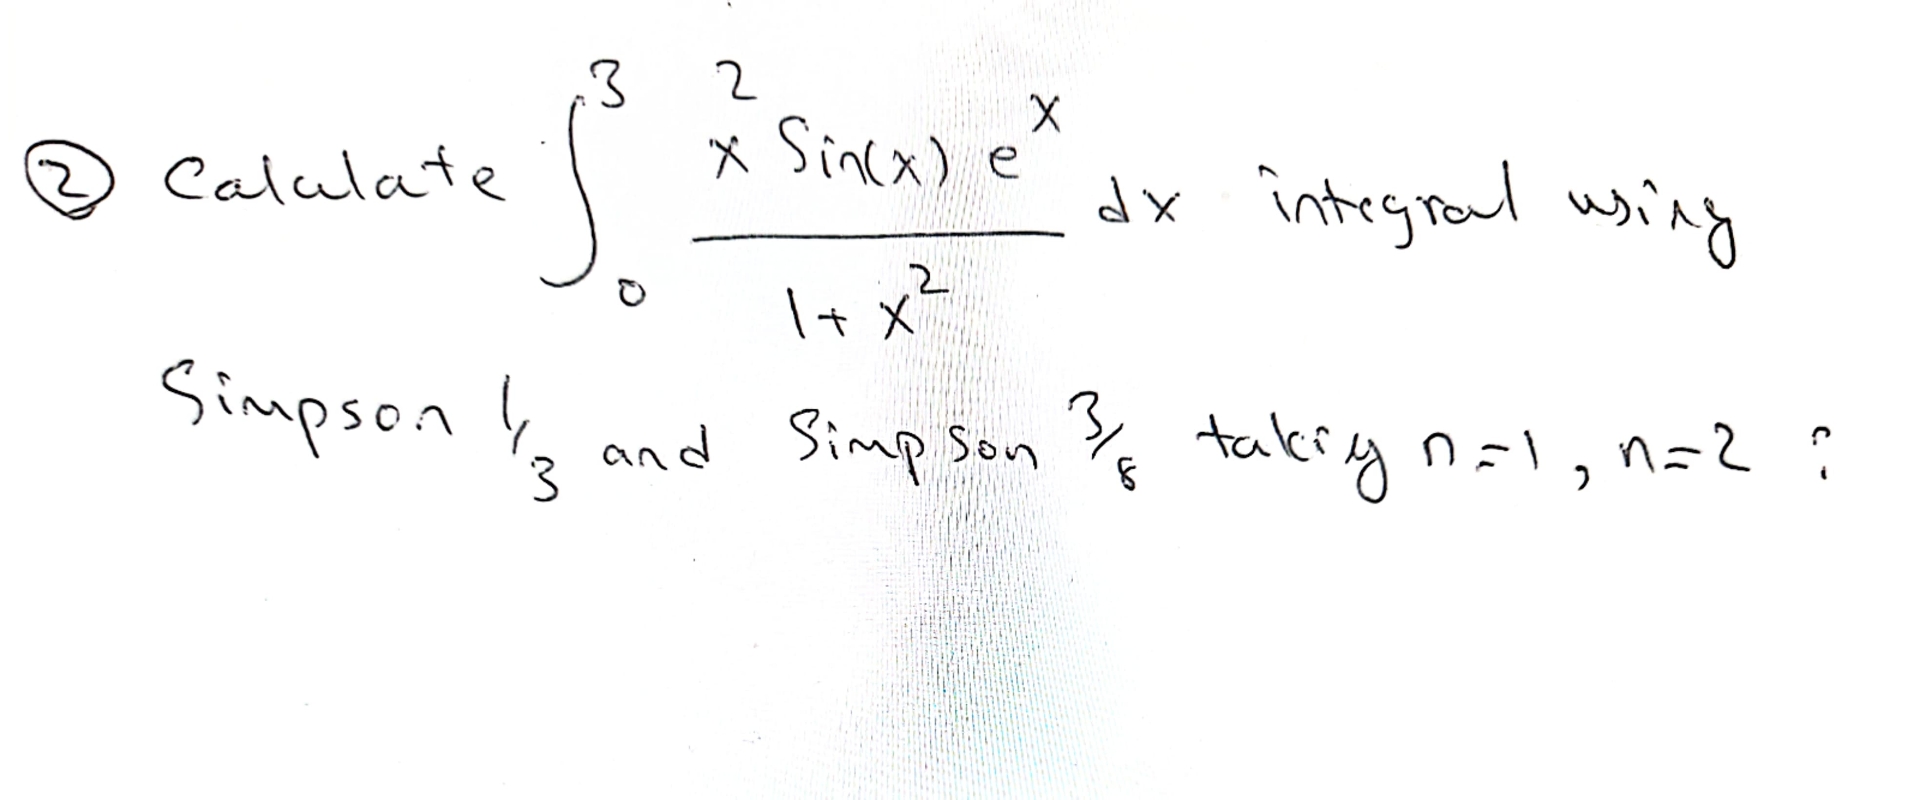 ② Calculate ∫₀³ x² Sin(x) eˣ / 1 + x² dx integral using
Simpson 1/3 and Simpson 3/8 taking n=1, n=2 ?